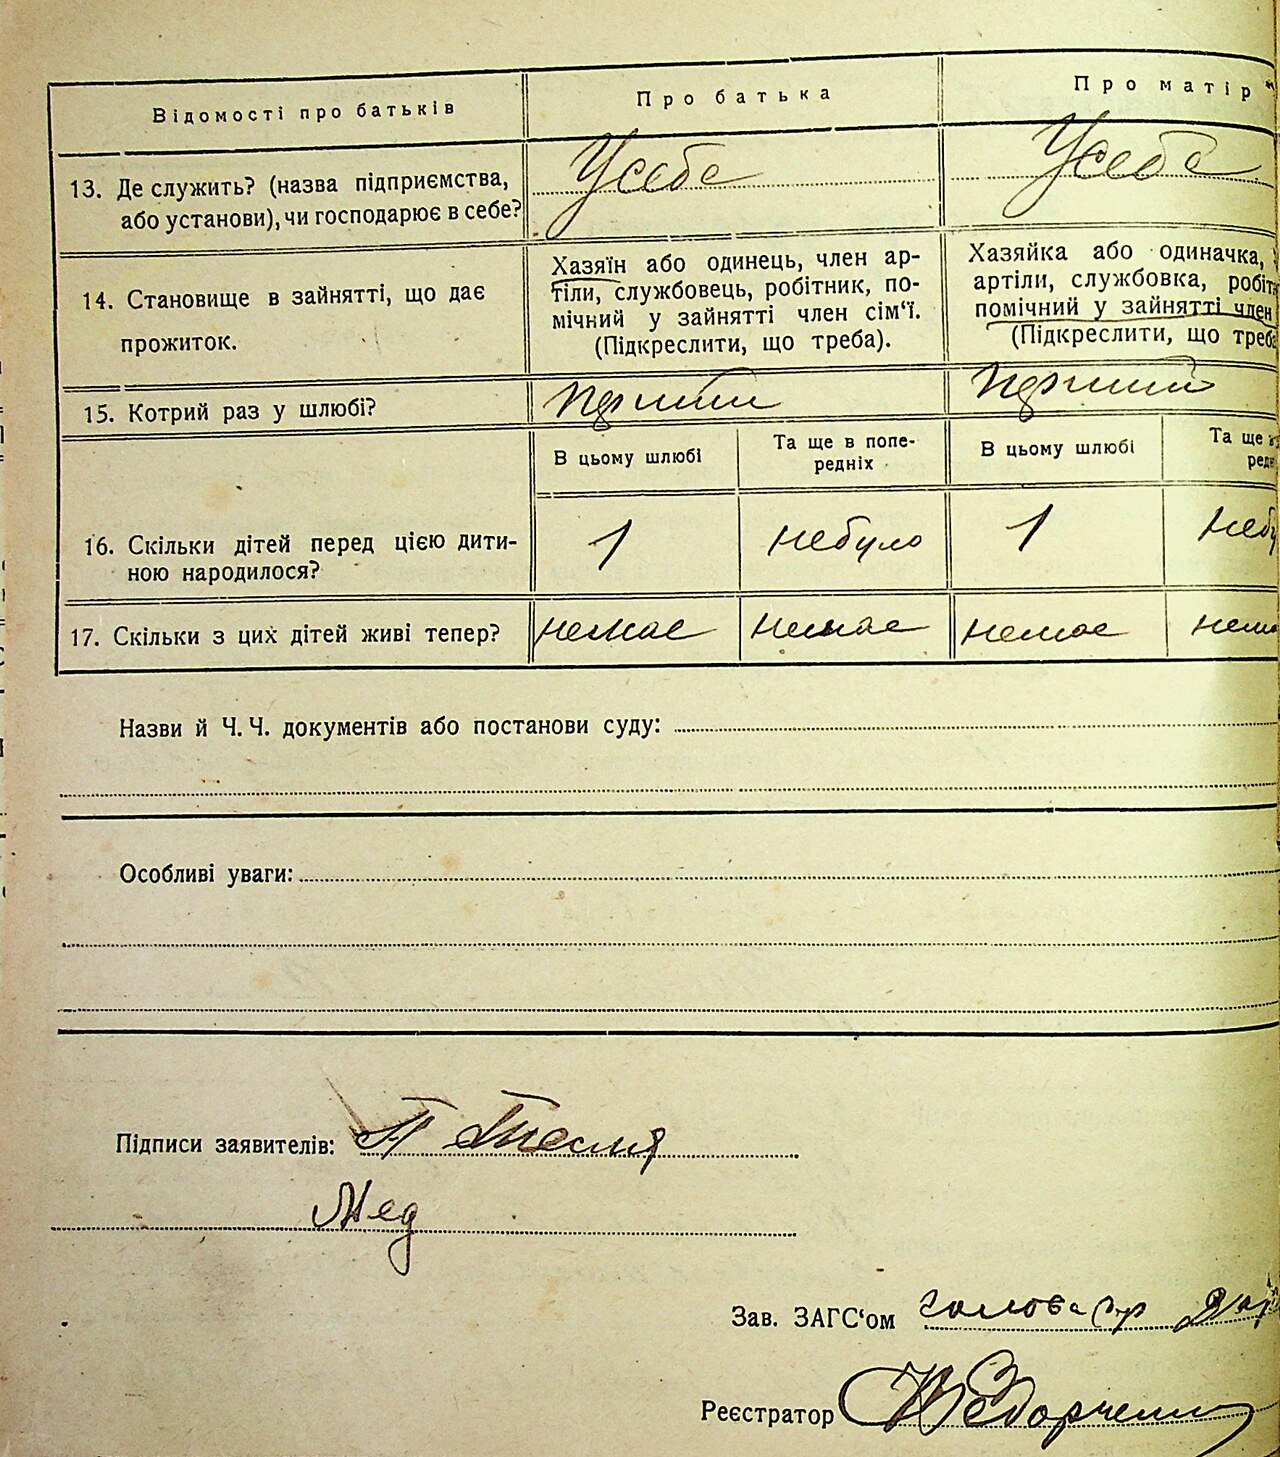 Відомості про батьків
Про батька
Про матір
13. Де служить? (назва підприємства,
або установи), чи господарює в себе?
Усебе
Усебе
14. Становище в зайнятті, що дає
прожиток.
Хазяїн або одинець, член ар-
тіли, службовець, робітник, по-
мічний у зайнятті член сім‘ї.
(Підкреслити, що треба).
Хазяйка або одиначка,
артіли, службовка, робіт
помічний у зайнятті член
(Підкреслити, що треба
15. Котрий раз у шлюбі?
Перший
Перший
В цьому шлюбі
Та ще в попе-
редніх
В цьому шлюбі
Та ще
ред
16. Скільки дітей перед цією дити-
ною народилося?
1
небуло
1
небу
17. Скільки з цих дітей живі тепер?
немає
немає
немає
нема
Назви й Ч. Ч. документів або постанови суду:
Особливі уваги:
Підписи заявителів: П Тесля
Мед
Зав. ЗАГС‘ом голова
Реєстратор